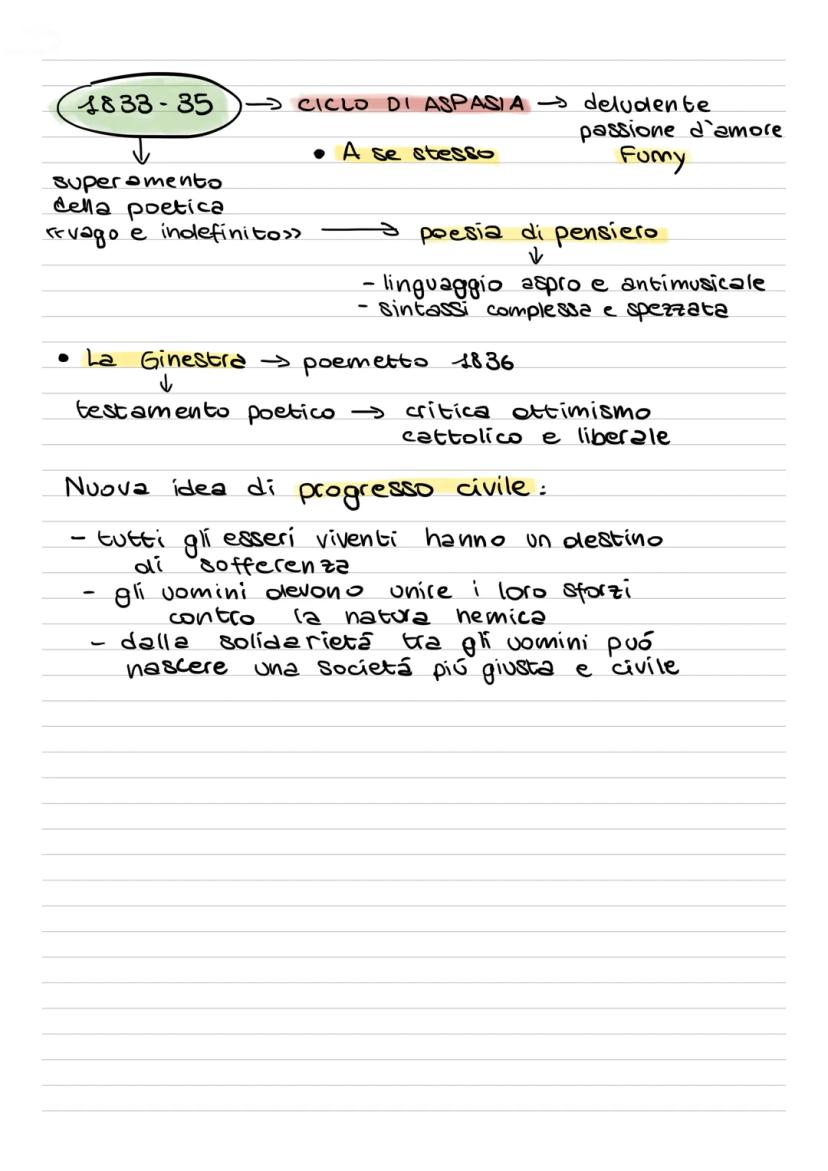 1833-35 → CICLO DI ASPASIA → deludente
passione d'amore
• A se stesso
Fumy
↓
superamento
della poetica
«vago e indefinito» → poesia di pensiero
↓
- linguaggio aspro e antimusicale
- sintassi complessa e spezzata
• La Ginestra → poemetto 1836
↓
testamento poetico → critica ottimismo
cattolico e liberale
Nuova idea di progresso civile:
- tutti gli esseri viventi hanno un destino
di sofferenza
- gli uomini devono unire i loro sforzi
contro la natura nemica
- dalla solidarietá tra gli uomini puó
nascere una societá piú giusta e civile